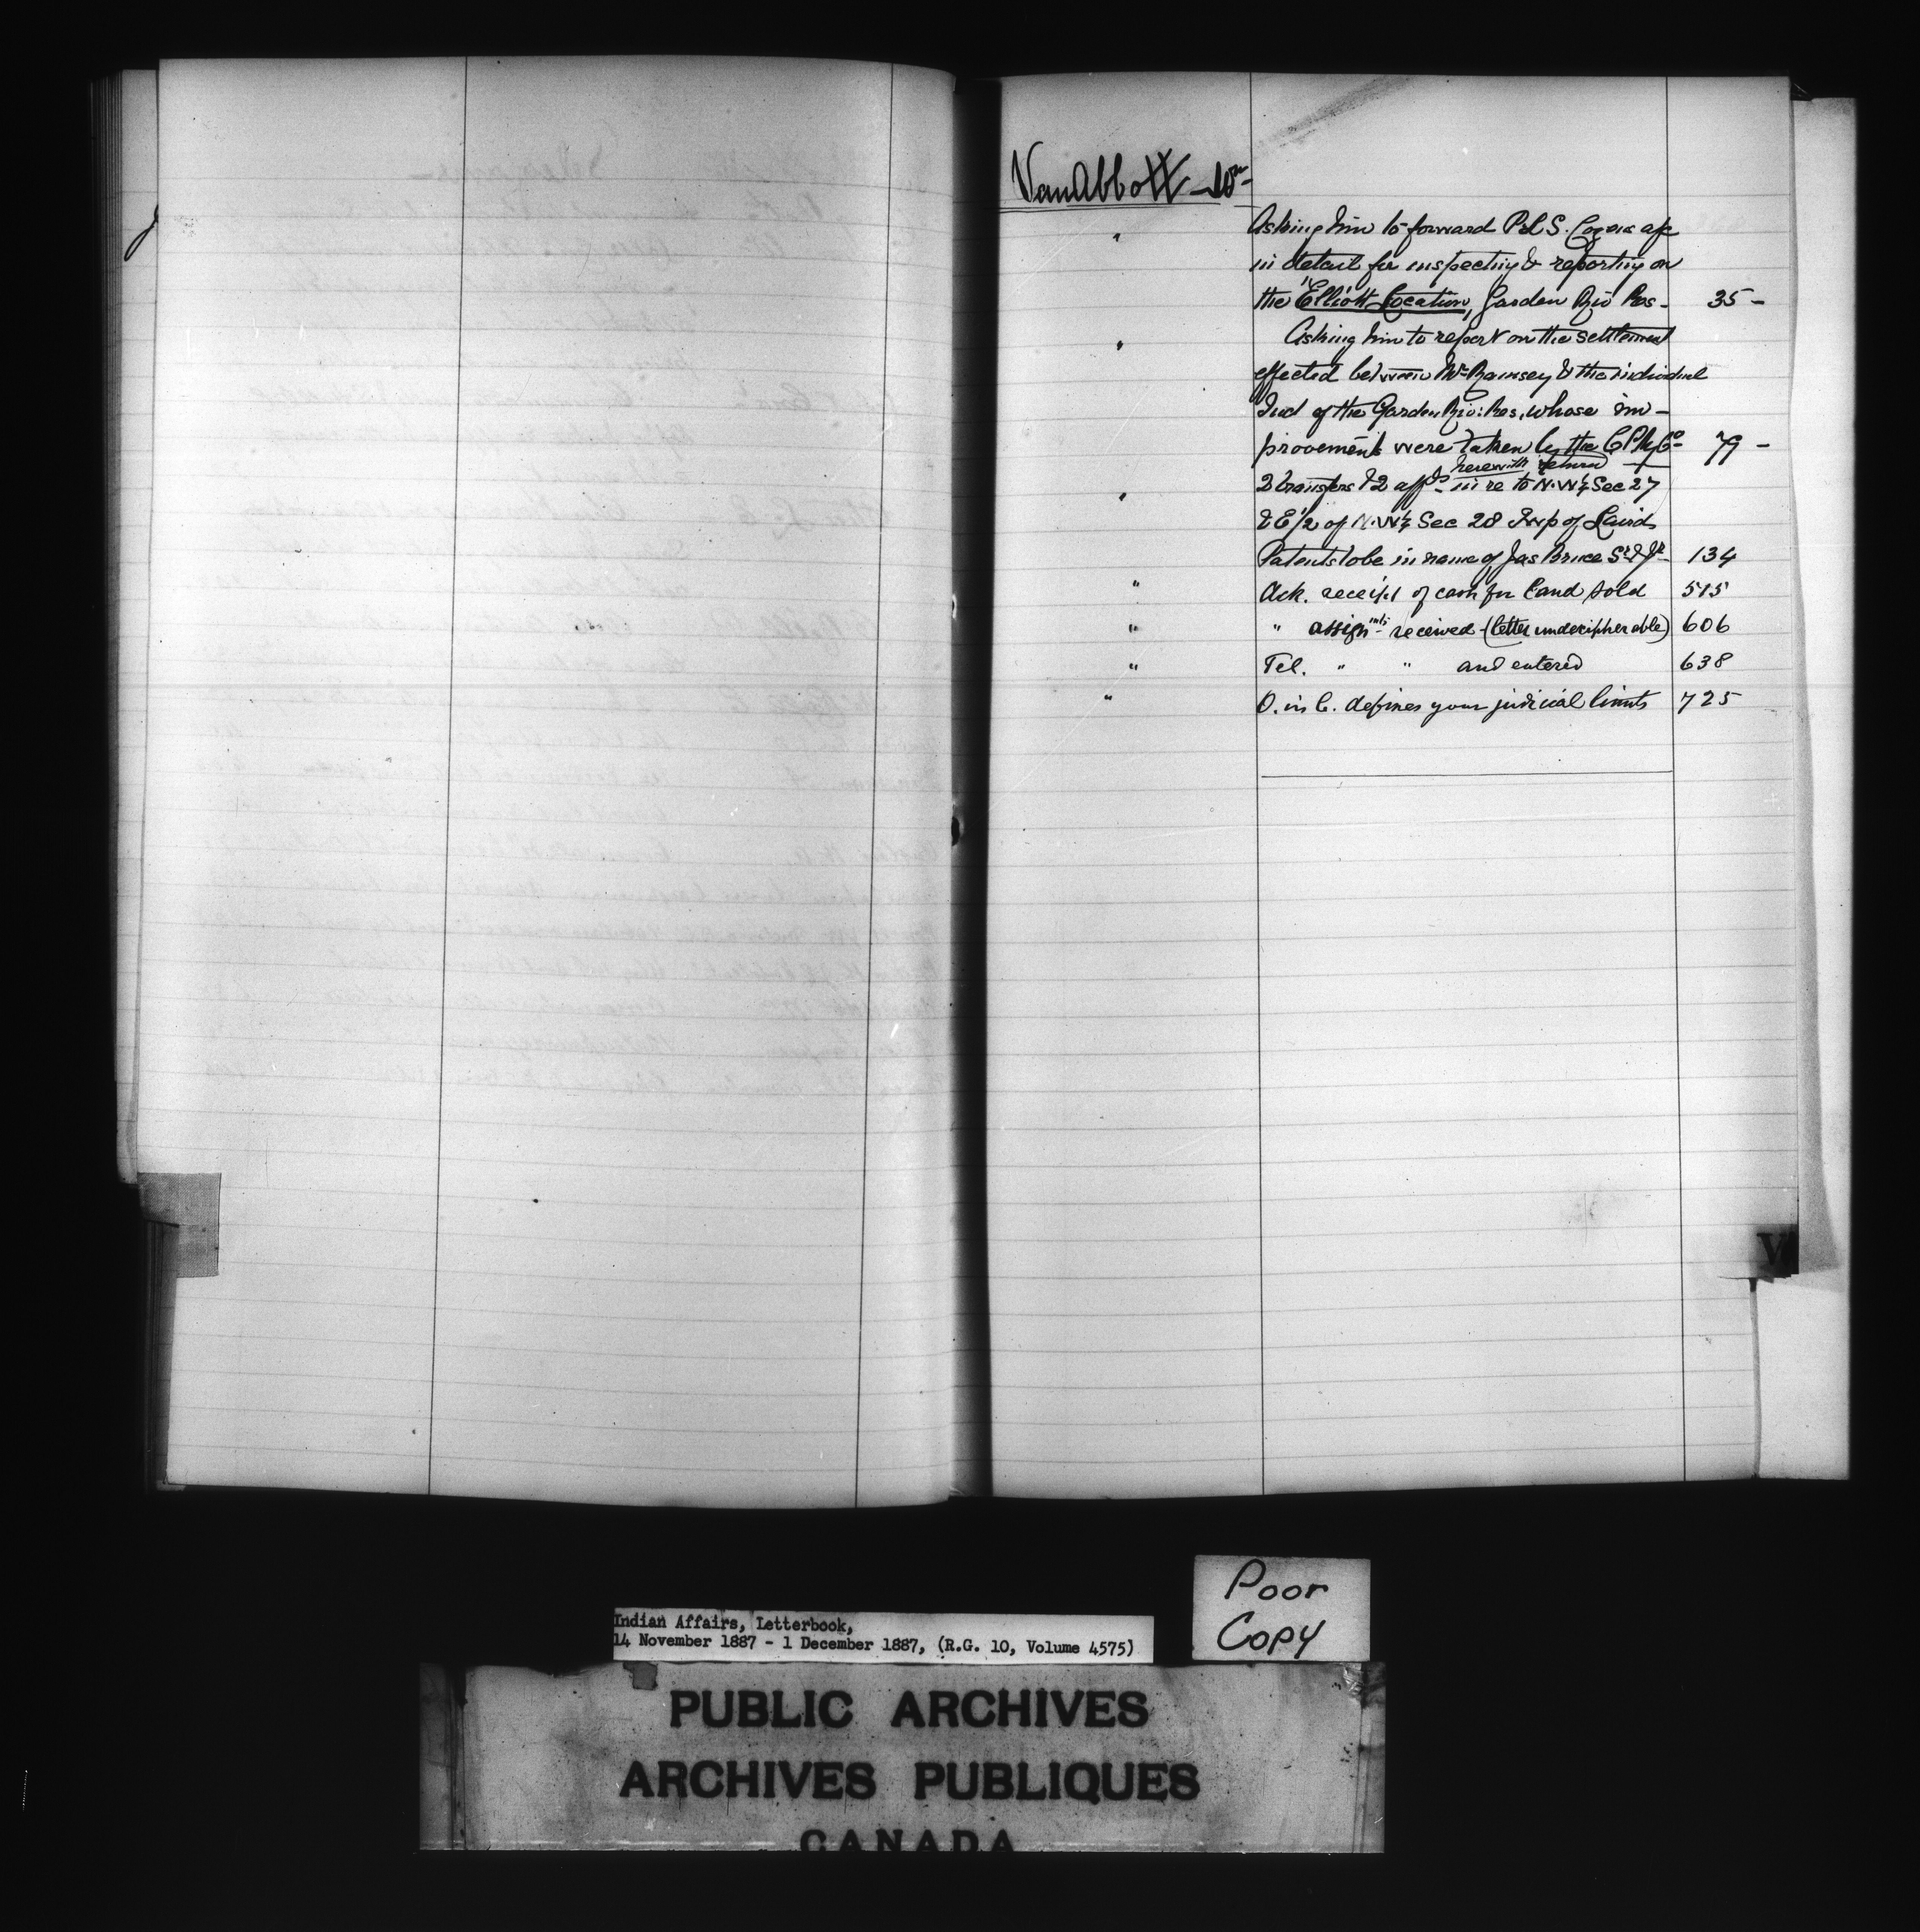 VanAbbott - Wm -
" Asking him to forward P.L.S. Cozens a/c
in detail for inspecting & reporting on
the "Elliott Location", Garden Riv Res - 35 -
" Asking him to report on the settlement
effected between Mr Ramsey & the individual
Ind of the Garden Riv: Res, whose im-
provements were taken by the C P Ry Co - 79 -
herewith return
" 2 transfers & 2 affds in re to N.W¼ Sec 27
& E½ of N.W¼ Sec 28 Twp of Laird
Patents to be in name of Jas Bruce Sr & Jr - 134
" Ack. receipt of cash for land sold 515
" " assignmts received - (letter undecipherable) 606
" Tel. " " and entered 638
" O. in C. defines your judicial limits 725
V
Poor
Copy
Indian Affairs, Letterbook,
14 November 1887 - 1 December 1887, (R.G. 10, Volume 4575)
PUBLIC ARCHIVES
ARCHIVES PUBLIQUES
CANADA